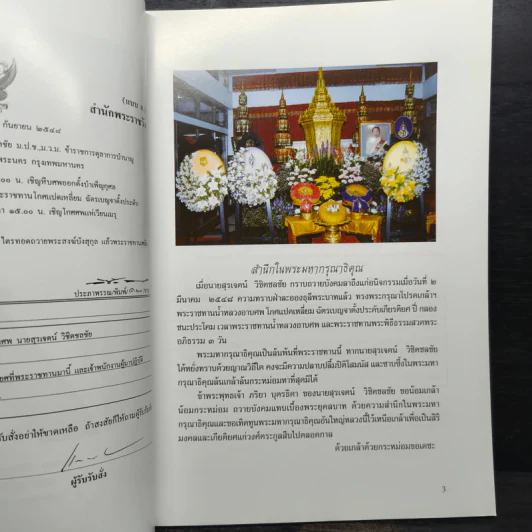 (แบบ
สำนักพระราชวัง
กันยายน ๒๕๔๘
ม.ป.ช.,ม.ว.ม. ข้าราชการตุลาการบำนาญ
พระนคร กรุงเทพมหานคร
น. เชิญหีบศพออกตั้งบำเพ็ญกุศล
ระราชทานโกศแปดเหลี่ยม ฉัตรเบญจาตั้งประดับ
๑๕.๐๐ น. เชิญโกศศพแห่เวียนเมรุ
ไตรทอดถวายพระสงฆ์บังสุกุล แล้วพระราชทานเพลิง
ประภาพรรณ/พิมพ์/
ศพ นายสุรเจตน์ วิชิตชลชัย
ยศที่พระราชทานมานี้ และเจ้าพนักงานผู้มาปฏิบัติ
รับสั่งอย่าให้ขาดเหลือ ถ้าสงสัยก็ให้ถามผู้รับ
ผู้รับรับสั่ง
สำนึกในพระมหากรุณาธิคุณ
เมื่อนายสุรเจตน์ วิชิตชลชัย กราบถวายบังคมลาถึงแก่อนิจกรรมเมื่อวันที่ ๒
มีนาคม ๒๕๔๘ ความทราบฝ่าละอองธุลีพระบาทแล้ว ทรงพระกรุณาโปรดเกล้าฯ
พระราชทานน้ำหลวงอาบศพ โกศแปดเหลี่ยม ฉัตรเบญจาตั้งประดับเกียรติยศ ปี่ กลอง
ชนะประโคม เวลาพระราชทานน้ำหลวงอาบศพ และพระราชทานพระพิธีธรรมสวดพระ
อภิธรรม ๓ วัน
พระมหากรุณาธิคุณเป็นล้นพ้นที่พระราชทานนี้ หากนายสุรเจตน์ วิชิตชลชัย
ได้หยั่งทราบด้วยญาณวิถีใด คงจะมีความปลาบปลื้มปีติโสมนัส และซาบซึ้งในพระมหา
กรุณาธิคุณล้นเกล้าล้นกระหม่อมหาที่สุดมิได้
ข้าพระพุทธเจ้า ภริยา บุตรธิดา ของนายสุรเจตน์ วิชิตชลชัย ขอน้อมเกล้า
น้อมกระหม่อม ถวายบังคมแทบเบื้องพระยุคลบาท ด้วยความสำนึกในพระมหา
กรุณาธิคุณและขอเทิดทูนพระมหากรุณาธิคุณอันใหญ่หลวงนี้ไว้เหนือเกล้าเพื่อเป็นสิริ
มงคลและเกียรติยศแก่วงศ์ตระกูลสืบไปตลอดกาล
ด้วยเกล้าด้วยกระหม่อมขอเดชะ
3